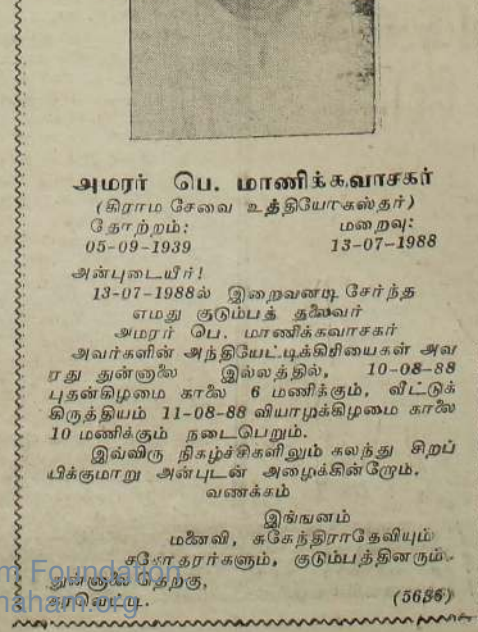 அமரர் பெ. மாணிக்கவாசகர்
(கிராம சேவை உத்தியோகஸ்தர்)
தோற்றம்: மறைவு:
05-09-1939 13-07-1988
அன்புடையீர்!
13-07-1988ல் இறைவனடி சேர்ந்த
எமது குடும்பத் தலைவர்
அமரர் பெ. மாணிக்கவாசகர்
அவர்களின் அந்தியேட்டிக்கிரியைகள் அவ
ரது துன்னாலை இல்லத்தில், 10-08-88
புதன்கிழமை காலை 6 மணிக்கும், வீட்டுக்
கிருத்தியம் 11-08-88 வியாழக்கிழமை காலை
10 மணிக்கும் நடைபெறும்.
இவ்விரு நிகழ்ச்சிகளிலும் கலந்து சிறப்
பிக்குமாறு அன்புடன் அழைக்கின்றோம்.
வணக்கம்
இங்ஙனம்
மனைவி, சுகேந்திராதேவியும்
சகோதரர்களும், குடும்பத்தினரும்.
துன்னாலைதெற்கு,
கரவெட்டி. (5686)
m Foundation
naham.org